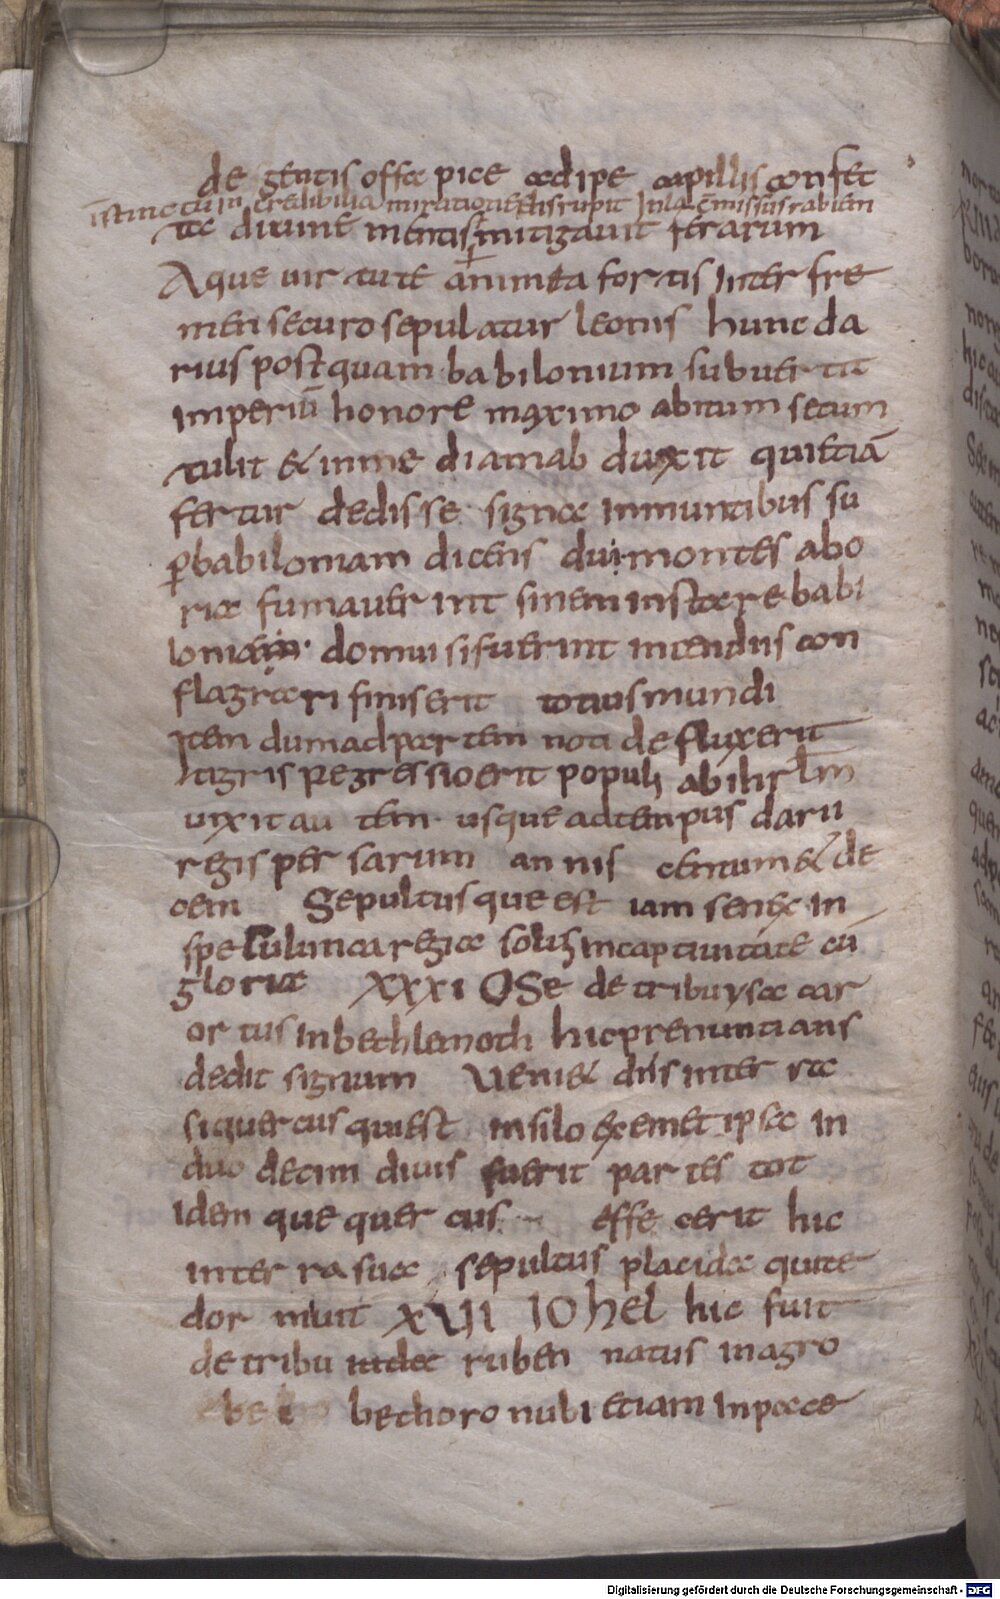 de gentis offa pice adipe capillis confec
istinctu incredibilia miratione disrupit In lacū missus rabiem
ta diuine mentis mitigauit ferarum
Aque uirtute animita fortis Inter fre
men securo sepulatur leonis hunc da
rius postquam babilonium subuertit
imperiū honore maximo abitum secum
tulit & in me diam ab duxit qui etiā
fertur dedisse signa inmuntibus su
ꝑ babiloniam dicens dui montes abo
ria fumauerint sinem instare babi
loniam domui si fuerint incendiis con
flagrari finis erit totius mundi
Item dum ad partem noti defluxerit
tigris regressio erit populi abihr lm
uixit au tem usque ad tempus darii
regis persarum annis centum & de
cem Sepultusque est iam senex in
speluluncaregia solus in captiuitate cū
gloria XXXI OSe de tribu ysacar
ortus In bechlemoth hic prenuntians
dedit signum Ueni& dn̄s inter rec
si quercus qui est in silo ex emet ipsa in
duo decim diuis fuerit partes tot
idem que quercus effe cerit hic
inter ra sua sepultus placida quite
dor miuit XXII IOhel hic fuit
de tribu ruben natus in agro
be bechoro nubi etiam In pace
Digitalisierung gefördert durch die Deutsche Forschungsgemeinschaft - DFG